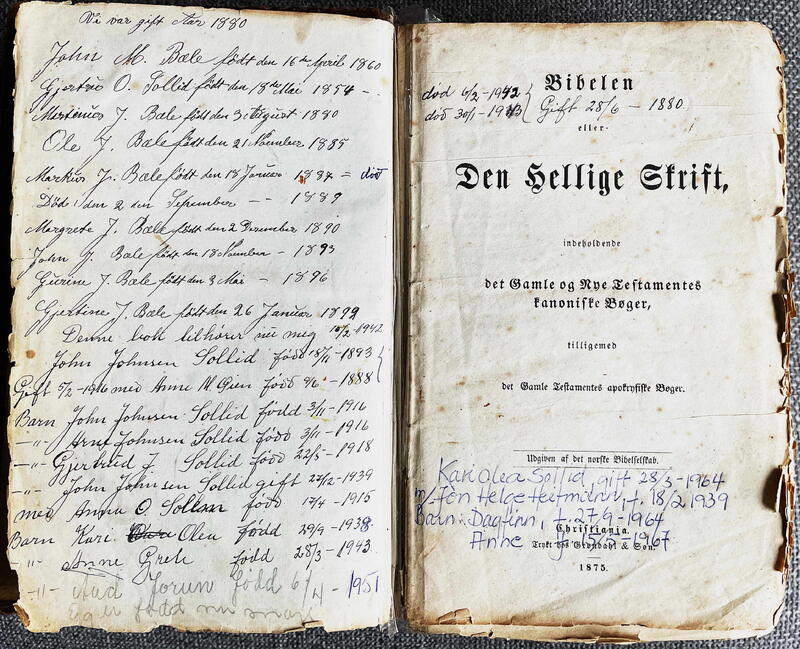 Vi var gift Aar 1880
John M. Bæle född den 16de April 1860
Gjertru O. Sollid född den 18de Mai 1854 -
Martinus J. Bæle född den 3 August 1880
Ole J. Bæle född den 21 November 1885
Markus J. Bæle född den 18 Januar 1887 = död
Döde den 2 den September - - 1889
Margrete J. Bæle född den 2 Desember 1890
John J. Bæle född den 18 November - 1893
Gurine J. Bæle född den 3 Mai - 1896
Gjertine J. Bæle född den 26 Januar 1899
Denne bok tilhører nu meg 10/2-1942
John Johnsen Sollid född 18/11-1893
Gift 5/2-1916 med Anne M född 9/6-1888
Barn John Johnsen Sollid född 3/11-1916
-"- Arnt Johnsen Sollid född 3/11-1916
-"- Gjertrud J. Sollid född 22/5-1918
-"- John Johnsen Sollid gift 27/12-1939
med Anna O. född 17/4-1915
Barn Kari Olea född 29/9-1938
-"- Anne Grete född 28/3-1943
-"- Aud Jorun född 6/4-1951
Bibelen
død 6/2-1942
død 30/1-1943 Gift 28/6-1880
eller
Den Hellige Skrift,
indeholdende
det Gamle og Nye Testamentes
kanoniske Bøger,
tilligemed
det Gamle Testamentes apokryfiske Bøger.
Udgiven af det norske Bibelselskab.
Kari Olea Sollid, gift 28/3-1964
m/Jon Helge Heitmann, f. 18/2 1939
Barn: Dagfinn, f. 27/9-1964
Christiania.
Anne f. 15/5-1967
Trykt hos Grøndahl & Søn.
1875.